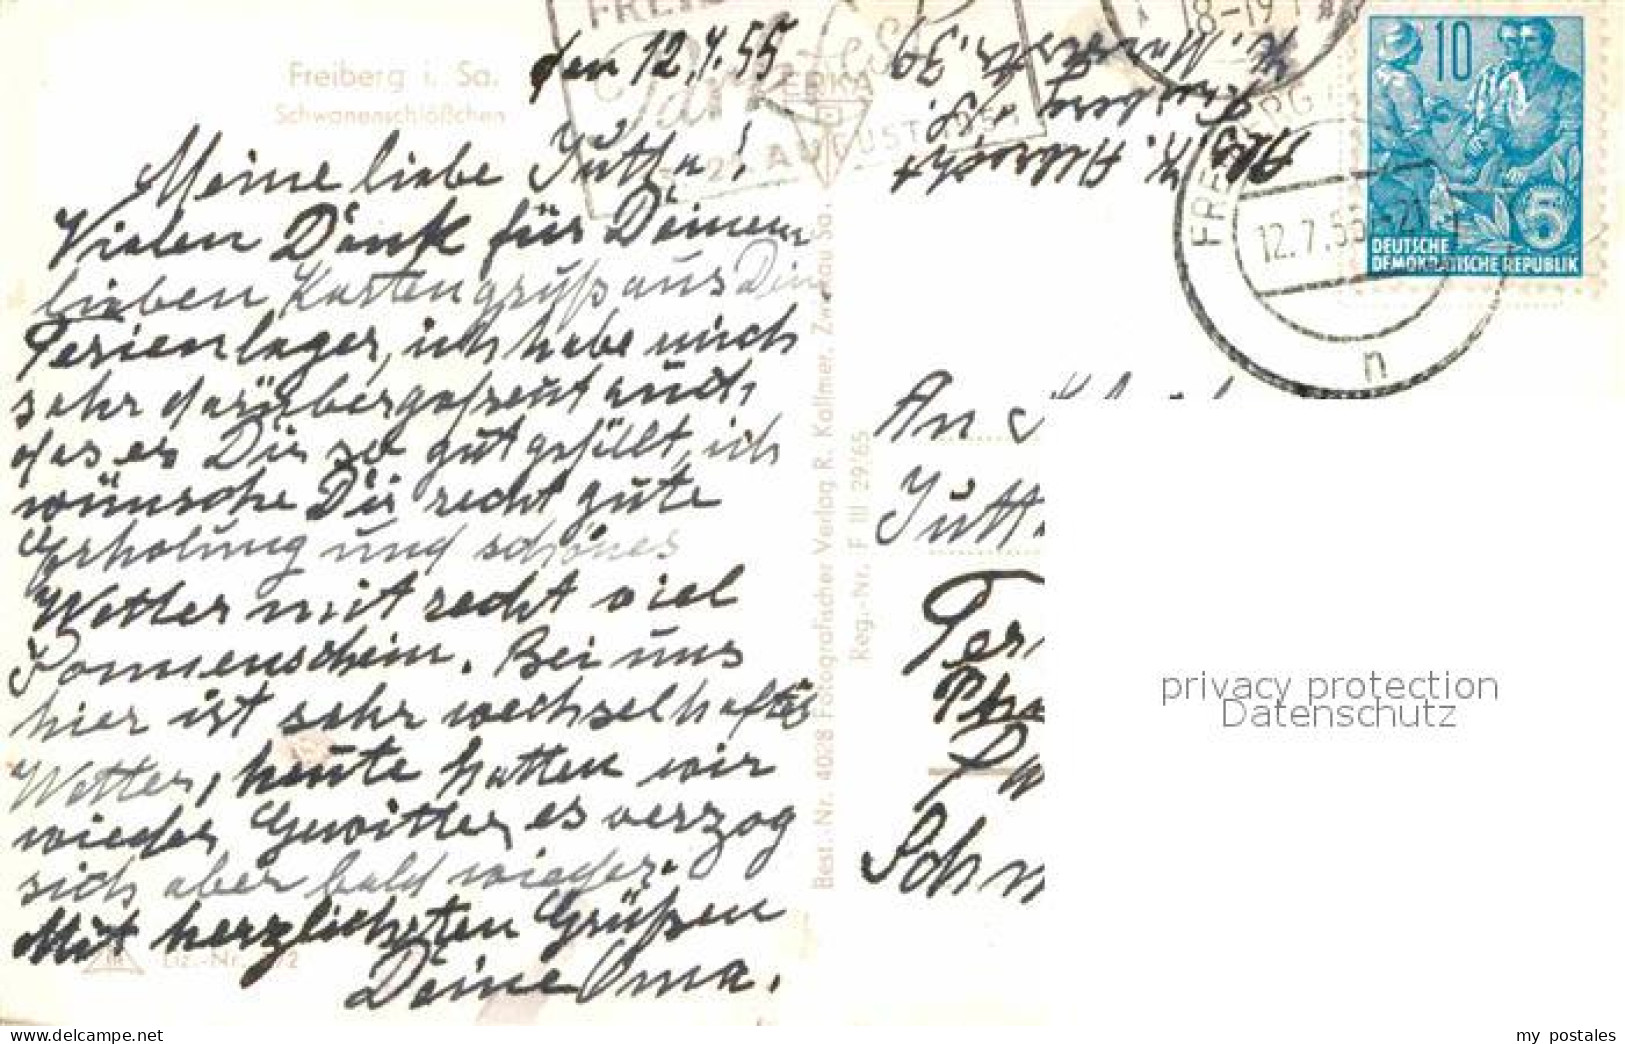 Freiberg i. Sa.
Schwanenschlößchen
den 12.7.55
Meine liebe Jutta!
Vielen Dank für Deinen
lieben Kartengruß aus Dein
Ferienlager, ich habe mich
sehr darüber gefreut auch
das es Dir so gut gefällt, ich
wünsche Dir recht gute
Erholung und schönes
Wetter mit recht viel
Sonnenschein. Bei uns
hier ist sehr wechselhaftes
Wetter, heute hatten wir
wieder Gewitter, es verzog
sich aber bald wieder.
Mit herzlichsten Grüßen
Deine Oma.
Liz.-Nr.
Best.-Nr. 4028 Fotografischer Verlag R. Kallmer, Zwickau Sa.
Reg.-Nr. F III 29/65
Freiberg
AUGUST
18-19
FREIBERG
12.7.55-21
n
10
5
DEUTSCHE
DEMOKRATISCHE REPUBLIK
An
Jutt
Fer
Schm
privacy protection
Datenschutz
my postales